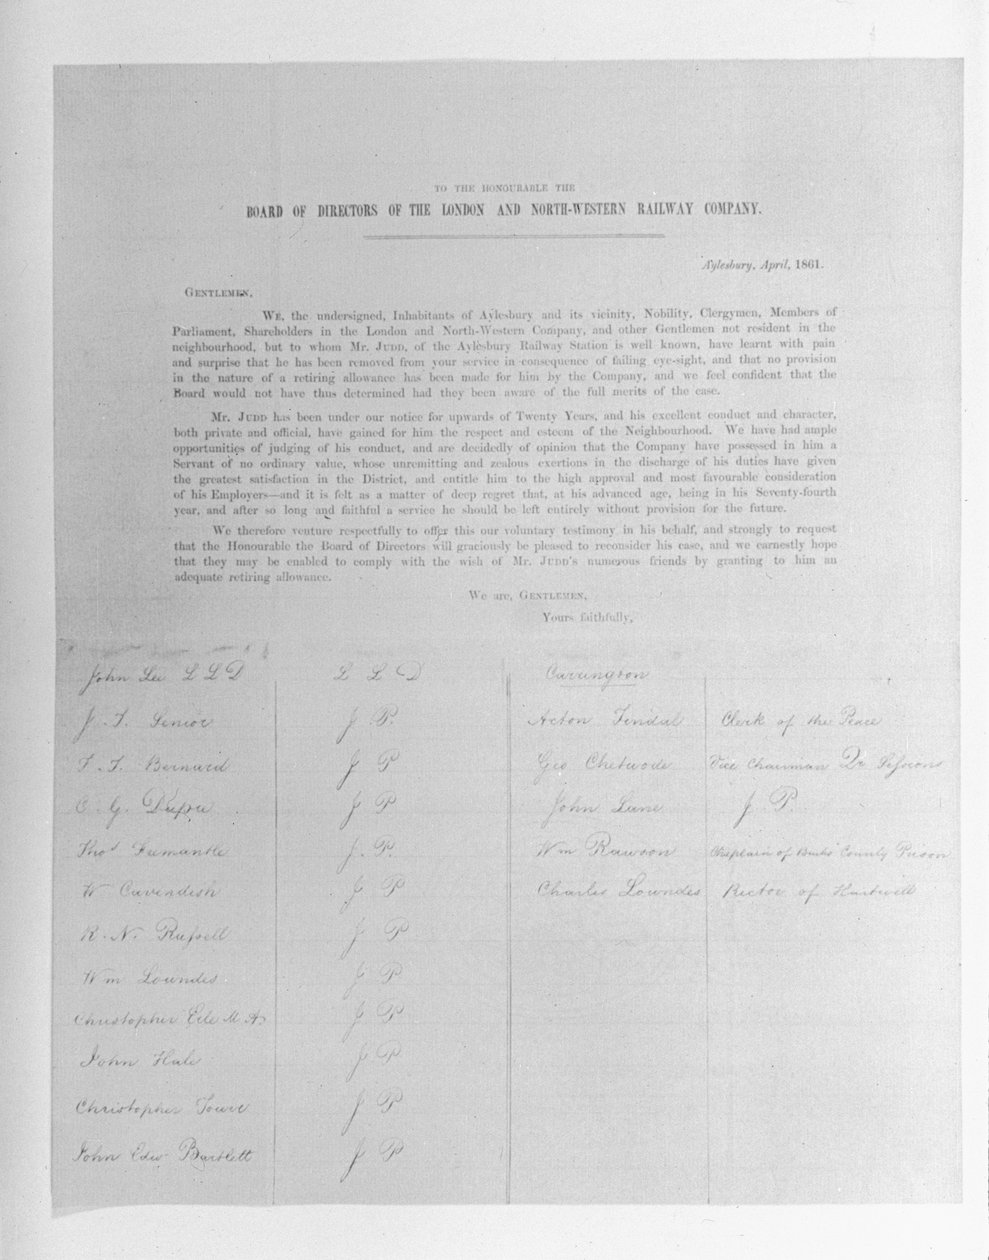 TO THE HONOURABLE THE
BOARD OF DIRECTORS OF THE LONDON AND NORTH-WESTERN RAILWAY COMPANY.
Aylesbury, April, 1861.
GENTLEMEN,
WE, the undersigned, Inhabitants of Aylesbury and its vicinity, Nobility, Clergymen, Members of
Parliament, Shareholders in the London and North-Western Company, and other Gentlemen not resident in the
neighbourhood, but to whom Mr. JUDD, of the Aylesbury Railway Station is well known, have learnt with pain
and surprise that he has been removed from your service in consequence of failing eye-sight, and that no provision
in the nature of a retiring allowance has been made for him by the Company, and we feel confident that the
Board would not have thus determined had they been aware of the full merits of the case.
Mr. JUDD has been under our notice for upwards of Twenty Years, and his excellent conduct and character,
both private and official, have gained for him the respect and esteem of the Neighbourhood. We have had ample
opportunities of judging of his conduct, and are decidedly of opinion that the Company have possessed in him a
Servant of no ordinary value, whose unremitting and zealous exertions in the discharge of his duties have given
the greatest satisfaction in the District, and entitle him to the high approval and most favourable consideration
of his Employers—and it is felt as a matter of deep regret that, at his advanced age, being in his Seventy-fourth
year, and after so long and faithful a service he should be left entirely without provision for the future.
We therefore venture respectfully to offer this our voluntary testimony in his behalf, and strongly to request
that the Honourable the Board of Directors will graciously be pleased to reconsider his case, and we earnestly hope
that they may be enabled to comply with the wish of Mr. JUDD's numerous friends by granting to him an
adequate retiring allowance.
We are, GENTLEMEN,
Yours faithfully,
John Lee L L D L L D
J. T. Senior J P.
T. T. Bernard J P
C. G. Dupre J P
Thos Fremantle J. P.
W Cavendish J P
R. N. Russell J P
Wm Lowndes J P
Christopher M A J P
John Hale J P
Christopher Tower J P
John Edw Bartlett J P
Carrington
Acton Tindal Clerk of the Peace
Geo Chetwode Vice Chairman Qr Sessions
John Lane J P.
Wm Rawson Chaplain of Bucks County Prison
Charles Lowndes Rector of Hartwell